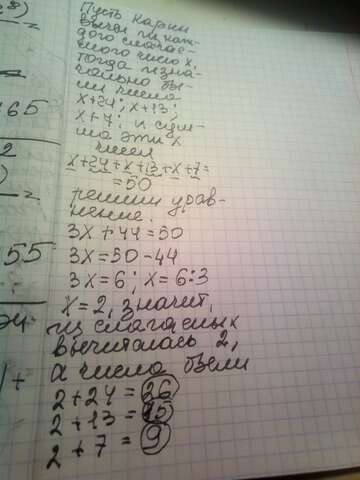 8)
=
65
2
)
=
55
Пусть Карин
вычел из каж-
дого слагае-
мого число x,
тогда изна-
чально бы-
ли числа
x+24; x+13;
x+7; и сум-
ма этих
чисел
x+24+x+13+x+7=
=50
решим урав-
нение.
3x+44=50
3x=50-44
3x=6; x=6:3
x=2, значит,
из слагаемых
вычиталась 2,
а число были
2+24=26
2+13=15
2+7=9